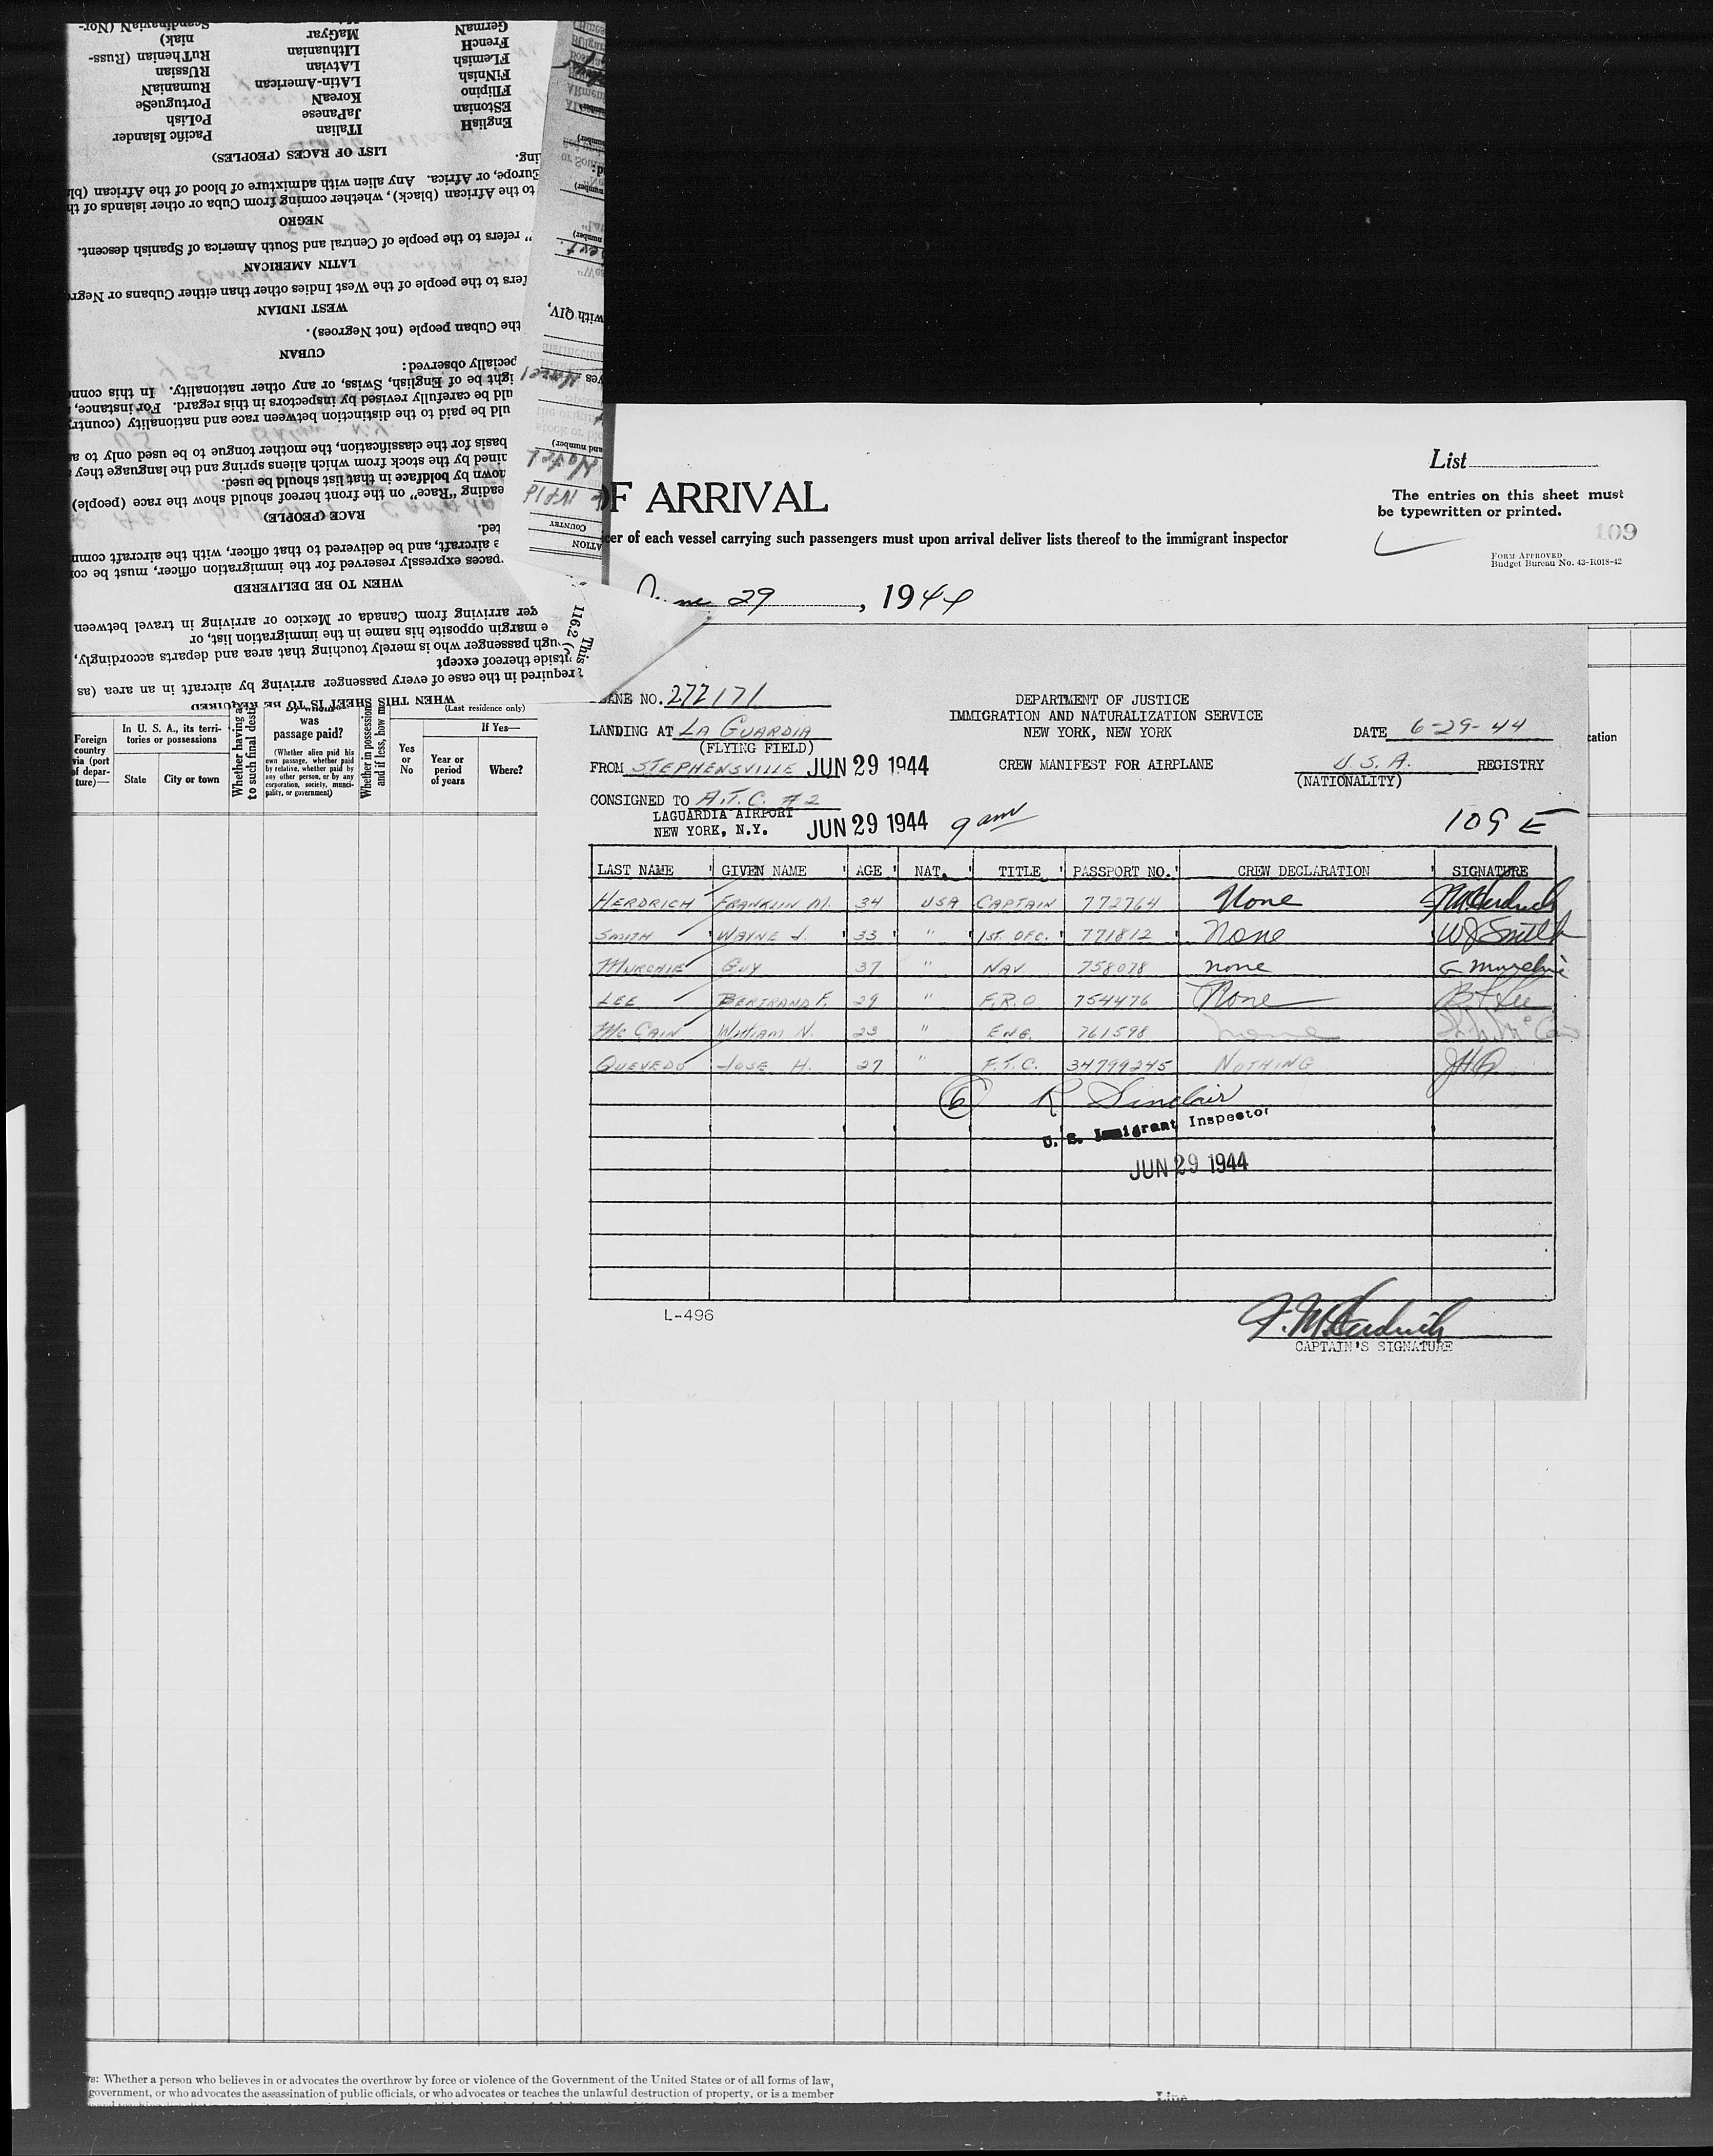 ScandinaviaN (Nor-
niak)
RuThenian (Russ-
RUssian
RumaniaN
PortugueSe
PoLish
Pacific Islander
MaGyar
LIthuanian
LAtvian
LAtin-American
KoreaN
JaPanese
ITalian
GermaN
FrencH
FLemish
FiNnish
FIlipino
EStonian
EnglisH
LIST OF RACES (PEOPLES)
ing.
Europe, or Africa. Any alien with admixture of blood of the African (bl
to the African (black), whether coming from Cuba or other islands of th
NEGRO
" refers to the people of Central and South America of Spanish descent.
LATIN AMERICAN
fers to the people of the West Indies other than either Cubans or Negro
WEST INDIAN
the Cuban people (not Negroes).
CUBAN
pecially observed:
ight be of English, Swiss, or any other nationality. In this conn
uld be carefully revised by inspectors in this regard. For instance,
uld be paid to the distinction between race and nationality (country
basis for the classification, the mother tongue to be used only to a
ained by the stock from which aliens spring and the language they
nown by boldface in that list should be used.
eading "Race" on the front hereof should show the race (people)
RACE (PEOPLE)
ted.
e aircraft, and be delivered to that officer, with the aircraft comm
paces expressly reserved for the immigration officer, must be co
WHEN TO BE DELIVERED
ger arriving from Canada or Mexico or arriving in travel between
e margin opposite his name in the immigration list, or
ugh passenger who is merely touching that area and departs accordingly,
tside thereof except
required in the case of every passenger arriving by aircraft in an area (as
WHEN THIS SHEET IS TO BE REQUIRED
with QIV,
and number)
COUNTRY
ATION
This
116.2 (
List
OF ARRIVAL
The entries on this sheet must
be typewritten or printed.
109
cer of each vessel carrying such passengers must upon arrival deliver lists thereof to the immigrant inspector
FORM APPROVED
Budget Bureau No. 43-R018-42
June 29, 1944
PLANE NO. 272171
DEPARTMENT OF JUSTICE
IMMIGRATION AND NATURALIZATION SERVICE
NEW YORK, NEW YORK
LANDING AT LA GUARDIA
(FLYING FIELD)
DATE 6-29-44
FROM STEPHENSVILLE JUN 29 1944
CREW MANIFEST FOR AIRPLANE
U.S.A. REGISTRY
(NATIONALITY)
CONSIGNED TO A.T.C. #2
LAGUARDIA AIRPORT
NEW YORK, N.Y. JUN 29 1944 9 am
109 E
LAST NAME GIVEN NAME AGE NAT. TITLE PASSPORT NO. CREW DECLARATION SIGNATURE
HERDRICH FRANKLIN M. 34 USA CAPTAIN 772764 None F M Herdrich
SMITH WAYNE J. 33 " 1ST. OFC. 771812 None W J Smith
MURCHIE GUY 37 " NAV 758078 none G Murchie
LEE BERTRAND F. 29 " F.R.O 754476 None B F Lee
McCAIN William N. 23 " ENG. 761598 none W N McCain
QUEVEDO JOSE H. 27 " F.T.C. 34799245 NOTHING JHQ
6 R Sinclair
U. S. Immigrant Inspector
JUN 29 1944
L-496
F. M. Herdrich
CAPTAIN'S SIGNATURE
Foreign
country
via (port
of depar-
ture)—
In U. S. A., its terri-
tories or possessions
State City or town
Whether having a
to such final desti
By whom
was
passage paid?
(Whether alien paid his
own passage, whether paid
by relative, whether paid by
any other person, or by any
corporation, society, munici-
pality, or government)
Whether in possession
and if less, how mu
(Last residence only)
Yes
or
No
If Yes—
Year or
period
of years
Where?
cation
rs: Whether a person who believes in or advocates the overthrow by force or violence of the Government of the United States or of all forms of law,
government, or who advocates the assassination of public officials, or who advocates or teaches the unlawful destruction of property, or is a member
Line